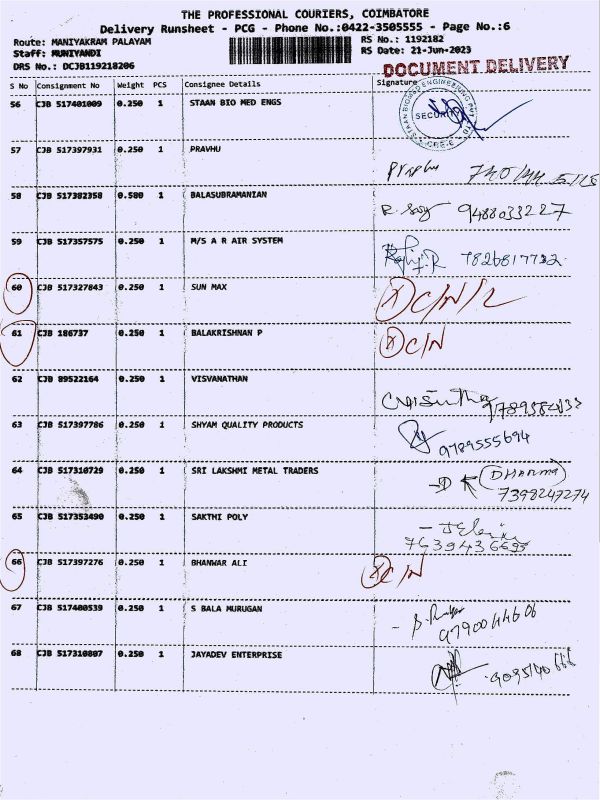 THE PROFESSIONAL COURIERS, COIMBATORE
Delivery Runsheet - PCG - Phone No.:0422-3505555 - Page No.:6
Route: MANIYAKRAM PALAYAM RS No.: 1192182
Staff: MUNIYANDI RS Date: 21-Jun-2023
DRS No.: DCJB119218206 DOCUMENT DELIVERY
S No Consignment No Weight PCS Consignee Details Signature
56 CJB 517401009 0.250 1 STAAN BIO MED ENGS SECURITY
57 CJB 517397931 0.250 1 PRAVHU
58 CJB 517382358 0.500 1 BALASUBRAMANIAN 9488033227
59 CJB 517357575 0.250 1 M/S A R AIR SYSTEM 7826817732
60 CJB 517327843 0.250 1 SUN MAX
61 CJB 186737 0.250 1 BALAKRISHNAN P C/N
62 CJB 89522164 0.250 1 VISVANATHAN
63 CJB 517397786 0.250 1 SHYAM QUALITY PRODUCTS 9789555694
64 CJB 517310729 0.250 1 SRI LAKSHMI METAL TRADERS DHARMA
7398247274
65 CJB 517353490 0.250 1 SAKTHI POLY
66 CJB 517397276 0.250 1 BHANWAR ALI C/N
67 CJB 517400539 0.250 1 S BALA MURUGAN
9790044606
68 CJB 517310807 0.250 1 JAYADEV ENTERPRISE